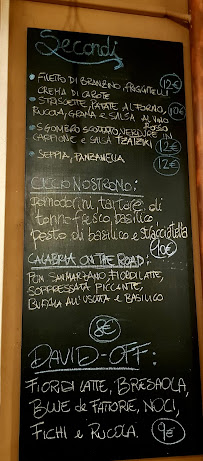 Secondi
• FILETO DI BRANZINO, FRIGGITELLI
CREMA DI CAROTE 12€
PATATE AL FORNO,
RUCOLA, GRANA E SALSA AL VINO
ROSSO 10€
• SGOMBRO SCOTTATO, VERDURE IN
CARPIONE E SALSA TZATZIKI 12€
• SEPPIA, PANZANELLA 12€
NOSTROMO:
Pomodorini, tartare di
tonno fresco, basilico
pesto di basilico e stracciatella
10€
CALABRIA ON THE ROAD:
POM SAN MARZANO, FIORDILATTE,
SOPPRESSATA PICCANTE,
BUFALA ALL'USCITA E BASILICO
8€
DAVID-OFF:
FIORDILATTE, BRESAOLA,
BLUE de FATTORIE, NOCI,
FICHI e RUCOLA. 9€